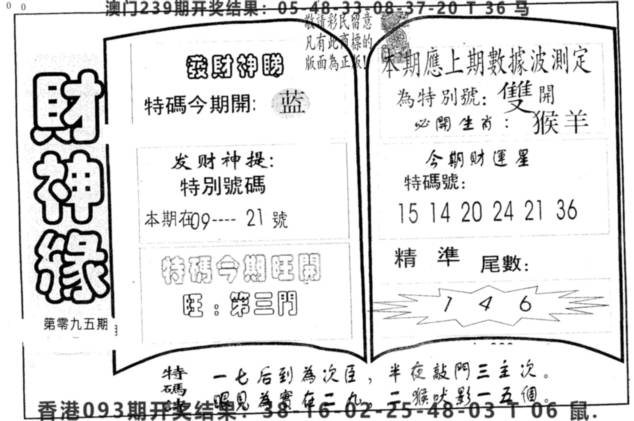 澳门239期开奖结果：05-48-33-08-37-20 T 36 马
敬请彩民留意
凡有此商標的
版面為正版!
財神緣
第零九五期
發財神勝
特碼今期開: 蓝
发财神提:
特別號碼
本期在09---- 21 號
特碼今期旺開
旺：第三門
本期應上期數據波測定
為特別號: 雙開
必開生肖: 猴羊
今期财運星
特碼號:
15 14 20 24 21 36
精 準 尾數:
1 4 6
特碼
一七后到為次臣，半夜敲門三主次。
眼見為實在二九，二猴吠影一五個。
香港093期开奖结果：38-16-02-25-48-03 T 06 鼠.